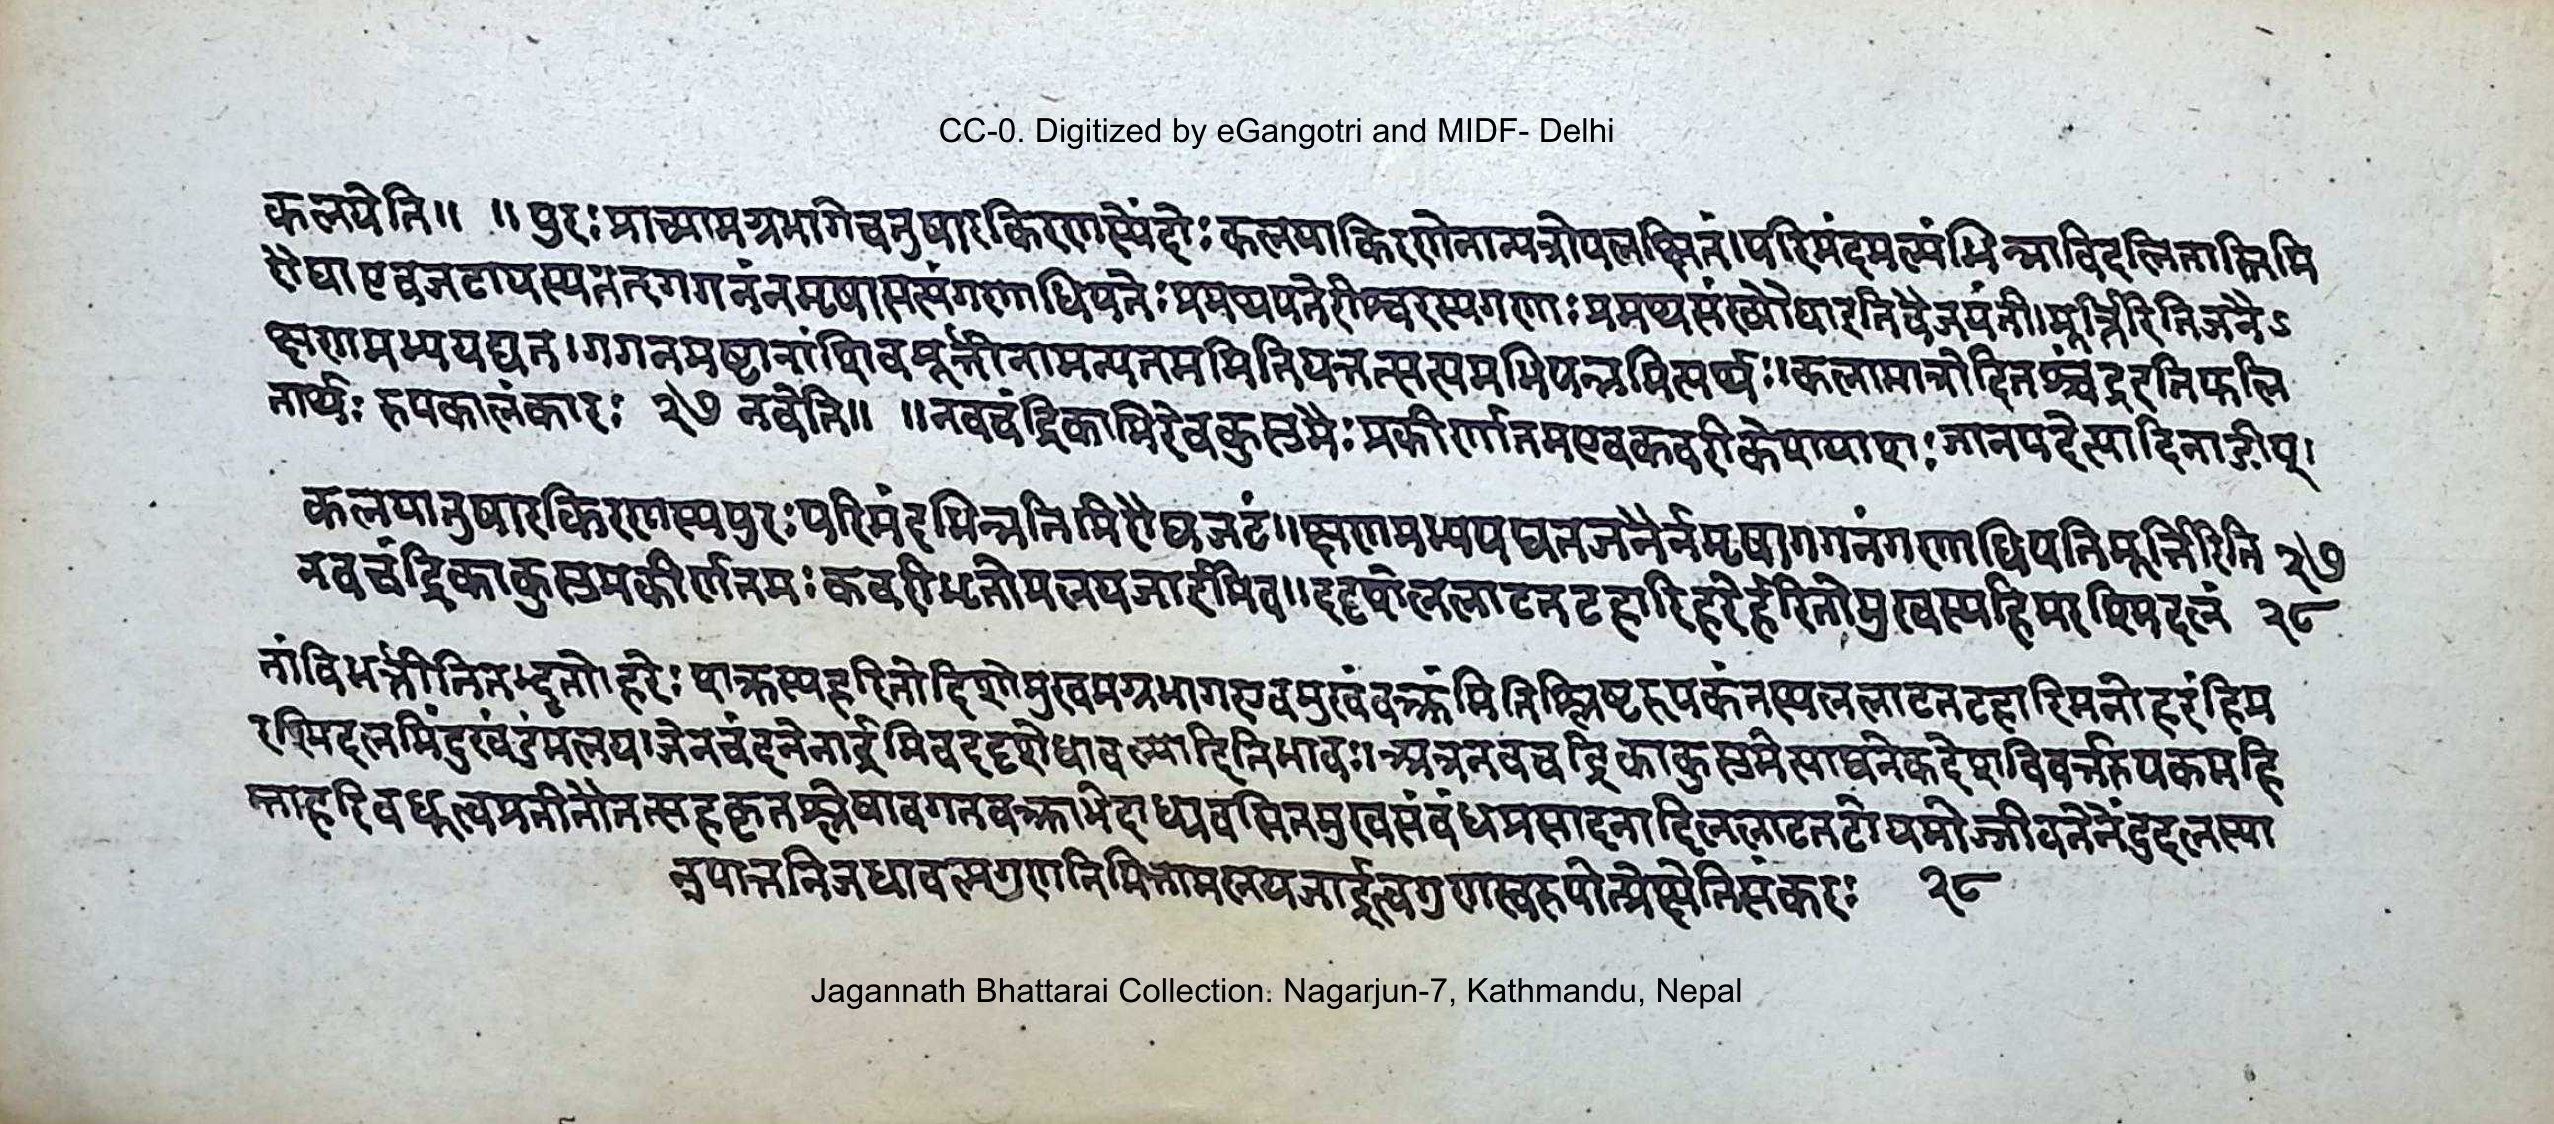 CC-0. Digitized by eGangotri and MIDF- Delhi
कलयेति॥ ॥पुरः प्राच्यामग्रभागेचतुषारकिरणस्येंदोः कलयाकिरणेनान्यत्रोपलक्षितं।परिमंदमल्पंभिन्नाविदलितास्तिमि
रौघाएवजटायस्यतत्गगनंनमृषासत्यंगणाधिपतेः प्रमथपतेरीश्वरस्यगणाः प्रमथसंख्यौघारतिवैजयंती।मूर्त्तिरितिजनैऽ
क्षणमभ्यपद्यत।गगनमष्टानांशिवमूर्त्तीनामन्यतममितियत्तत्सत्यमभिपन्नमित्यर्थः॥कलामात्रोदितश्चंद्ररतिफलि
तार्थः रुपकालंकारः २७ नवेति॥ ॥नवचंद्रिकाभिरेवकुसुमैः प्रकीर्णातमएवकवरीकेशपाशः जानपदेत्यादिनाङीष्।
कलयातुषारकिरणस्यपुरः परिमंदभिन्नतिमिरौघजटं॥क्षणमभ्यपद्यतजनैर्नमृषागगनंगणाधिपतिमूर्त्तिरिति २७
नवचंद्रिकाकुसुमकीर्णतमः कवरीभृतोमलयजार्द्रमिव॥ददृशेललाटतटहारिहरेर्हरितोमुखस्यहिमरश्मिदलं २८
तांविभर्त्तीतितभ्दृतो।हरेः शक्रस्यहरितोदिशोमुखमग्रभागएवमुखंवक्त्रंमितिश्लिष्टरुपकंतस्यललाटतटहारिमनोहरंहिम
रश्मिदलमिंदुखंडंमलय।जेनचंदनेनार्द्रमिवददृशेधावल्यादितिभावः॥अत्रनवचद्रिकाकुसुमेत्याद्यनेकदेशविवर्त्तरुपकमहि
म्नाहरिवधूत्वप्रतीतौतत्सहकृतश्लेषावगतवक्त्राभेदाध्यवसितमुखसंबंधप्रसादनादिललाटतटोपमोज्जीवनेनेंदुदलस्या
नुपात्तनिजधावल्यगुणनिमित्तामलयजार्द्रत्वगुणस्वरुपोत्प्रेक्षेतिसंकरः २८
Jagannath Bhattarai Collection: Nagarjun-7, Kathmandu, Nepal